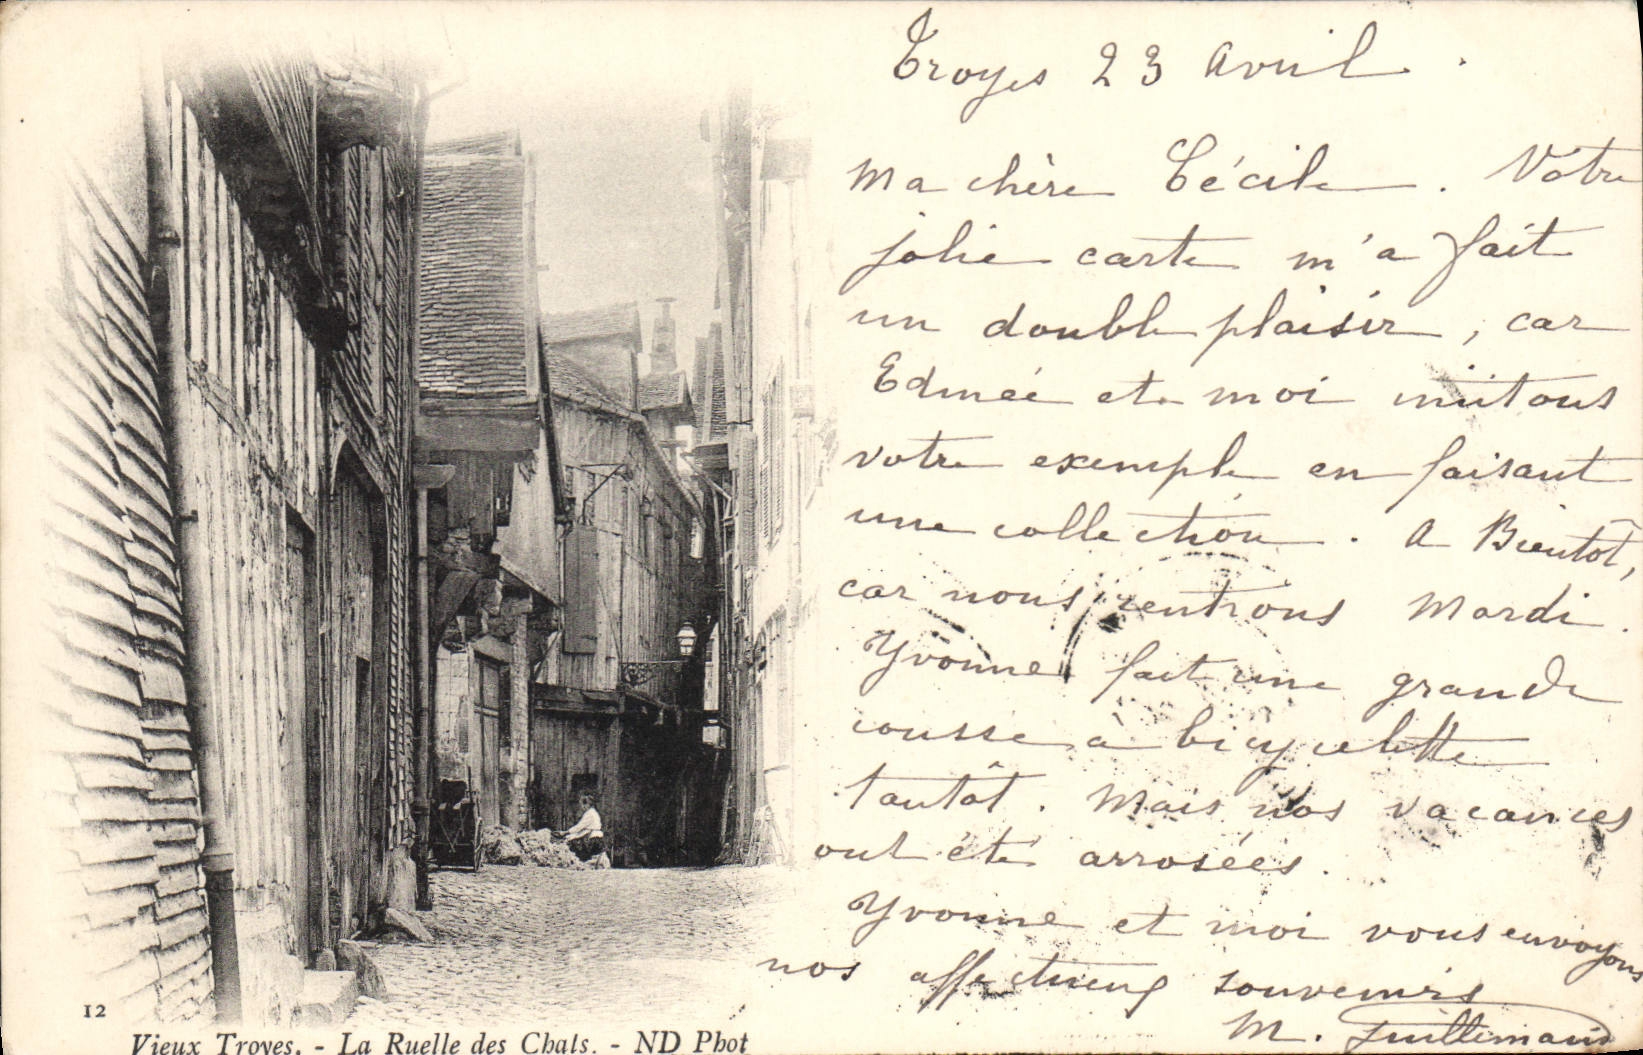 Troyes 23 avril.
Ma chère Cécile. Votre
jolie carte m'a fait
un double plaisir, car
Edmée et moi imitons
votre exemple en faisant
une collection. A Bientôt,
car nous rentrons Mardi.
Yvonne fait une grande
course à bicyclette
tantôt. Mais nos vacances
ont été arrosées.
Yvonne et moi vous envoyons
nos affectueux souvenirs
M. Guillemain
12
Vieux Troyes. - La Ruelle des Chats. - ND Phot